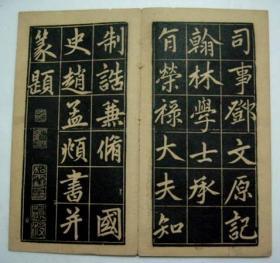 司事鄧文原記
翰林學士承
旨榮祿大夫知
制誥兼脩國
史趙孟頫書并
篆題